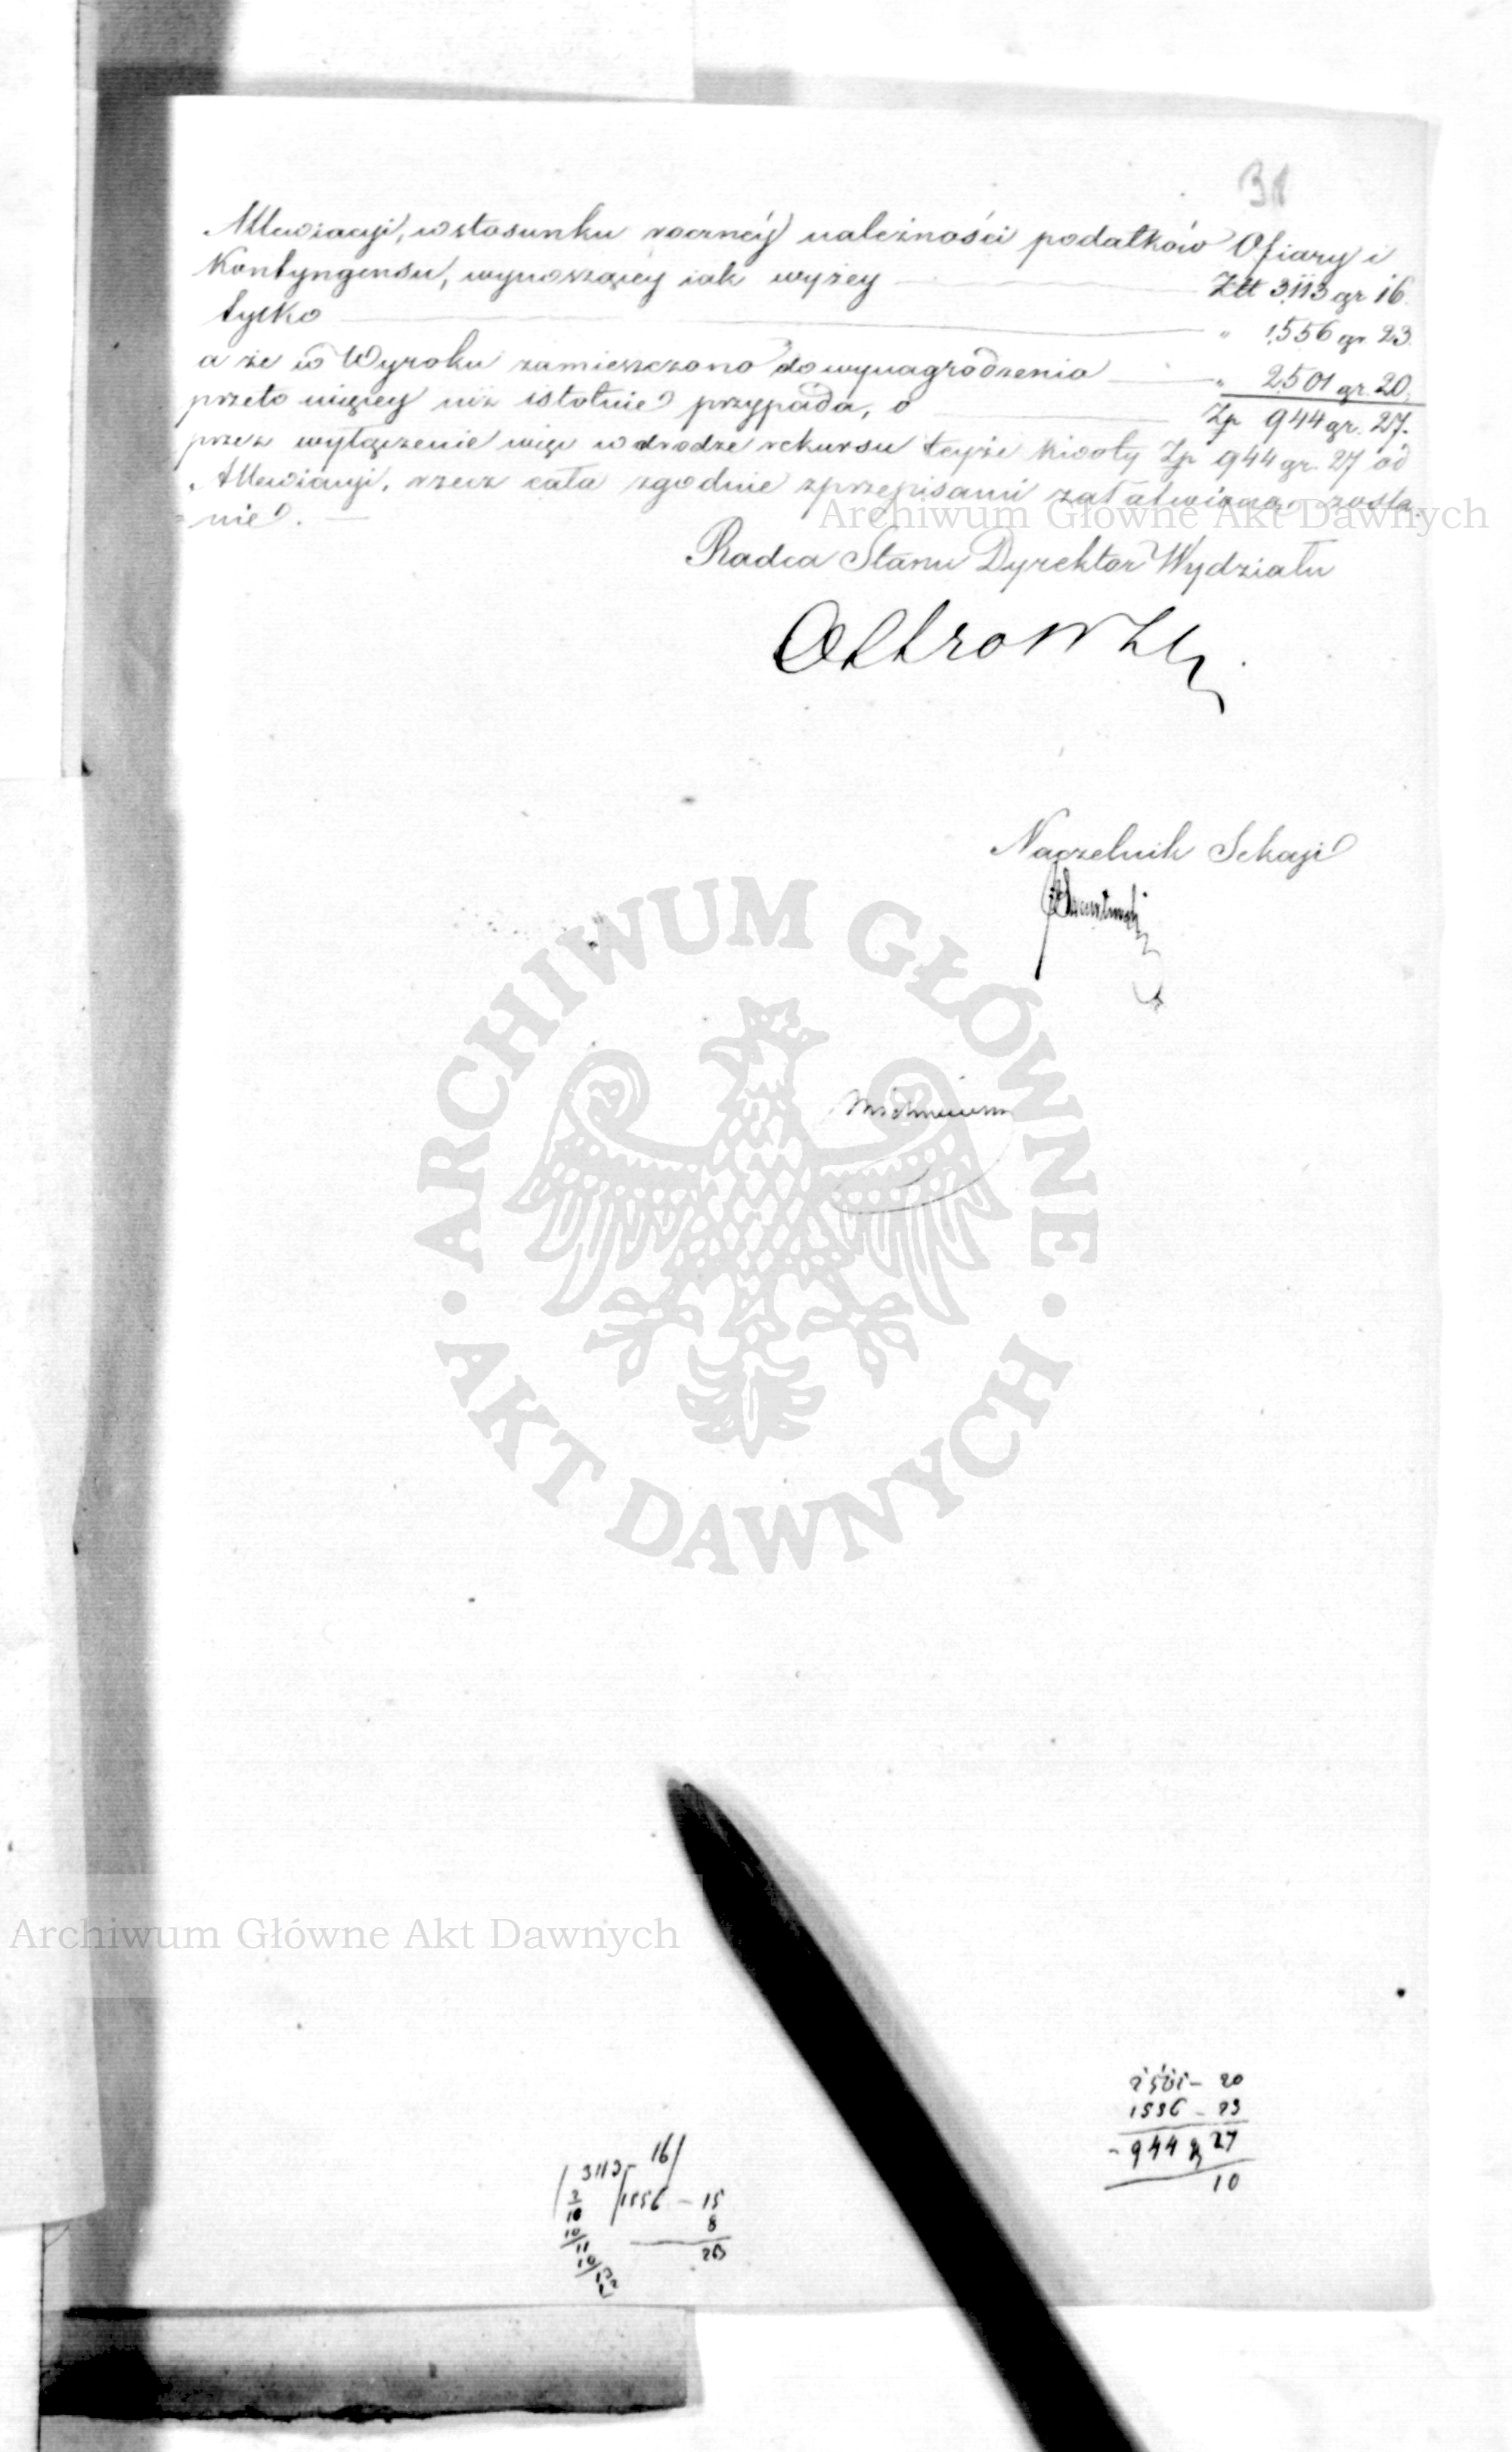 38
Allewiacyi, w stosunku roczney należności podatków Ofiary i
Kontyngensu, wynoszącey iak wyżey Złt 3,113 gr 16.
tylko " 1,556 gr. 23.
a że w Wyroku zamieszczono do wynagrodzenia " 2,501 gr. 20.
przeto więcey niż istotnie przypada, o Zp 944 gr. 27.
przez wyłączenie więc w drodze rekursu teyże kwoty Zp 944 gr. 27 od
Allewiacyi, rzecz cała zgodnie z przepisami załatwioną zosta-
nie. —
Archiwum Główne Akt Dawnych
Radca Stanu Dyrektor Wydziału
Naczelnik Sekcyi
ARCHIWUM GŁÓWNE
· AKT DAWNYCH ·
Archiwum Główne Akt Dawnych
2501 - 20
1556 - 23
- 944 27
10
3113 - 16
1556 - 15
8
23